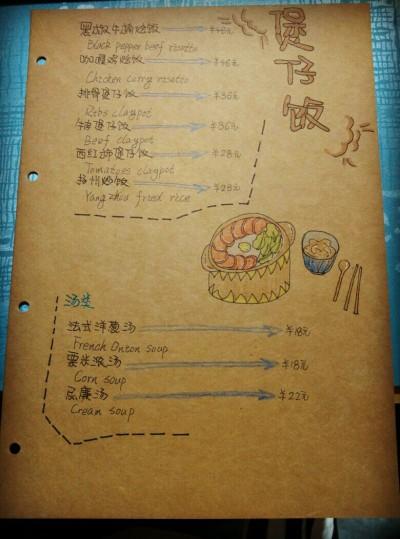 煲仔饭
黑椒牛柳烩饭 ¥46元
Black pepper beef risotto
咖喱鸡烩饭 ¥46元
Chicken curry risotto
排骨煲仔饭 ¥36元
Ribs claypot
牛肉煲仔饭 ¥36元
Beef claypot
西红柿煲仔饭 ¥28元
Tomatoes claypot
扬州炒饭 ¥28元
Yangzhou fried rice
汤类
法式洋葱汤 ¥18元
French Onion soup
粟米浓汤 ¥18元
Corn soup
忌廉汤 ¥22元
Cream soup